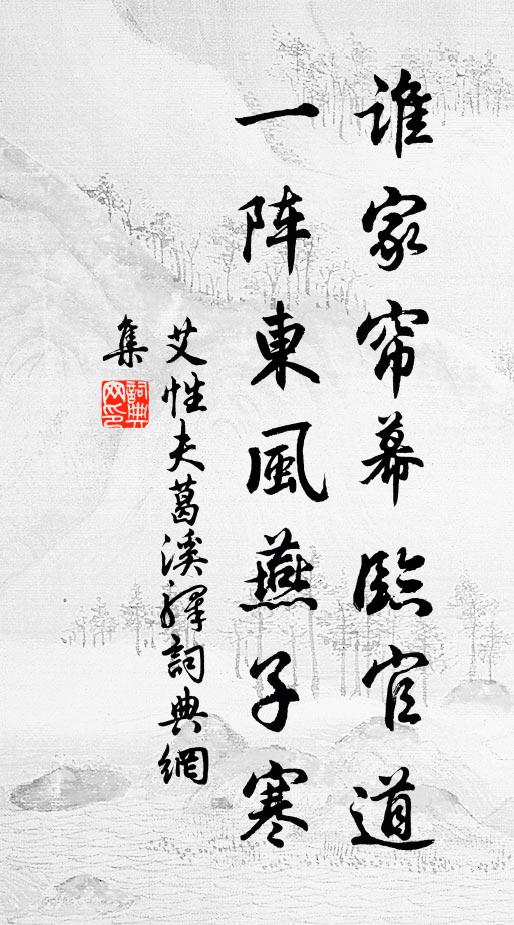 谁家帘幕臨官道
一阵東風燕子寒
艾性夫葛溪驛詞典網
集
詞典網印